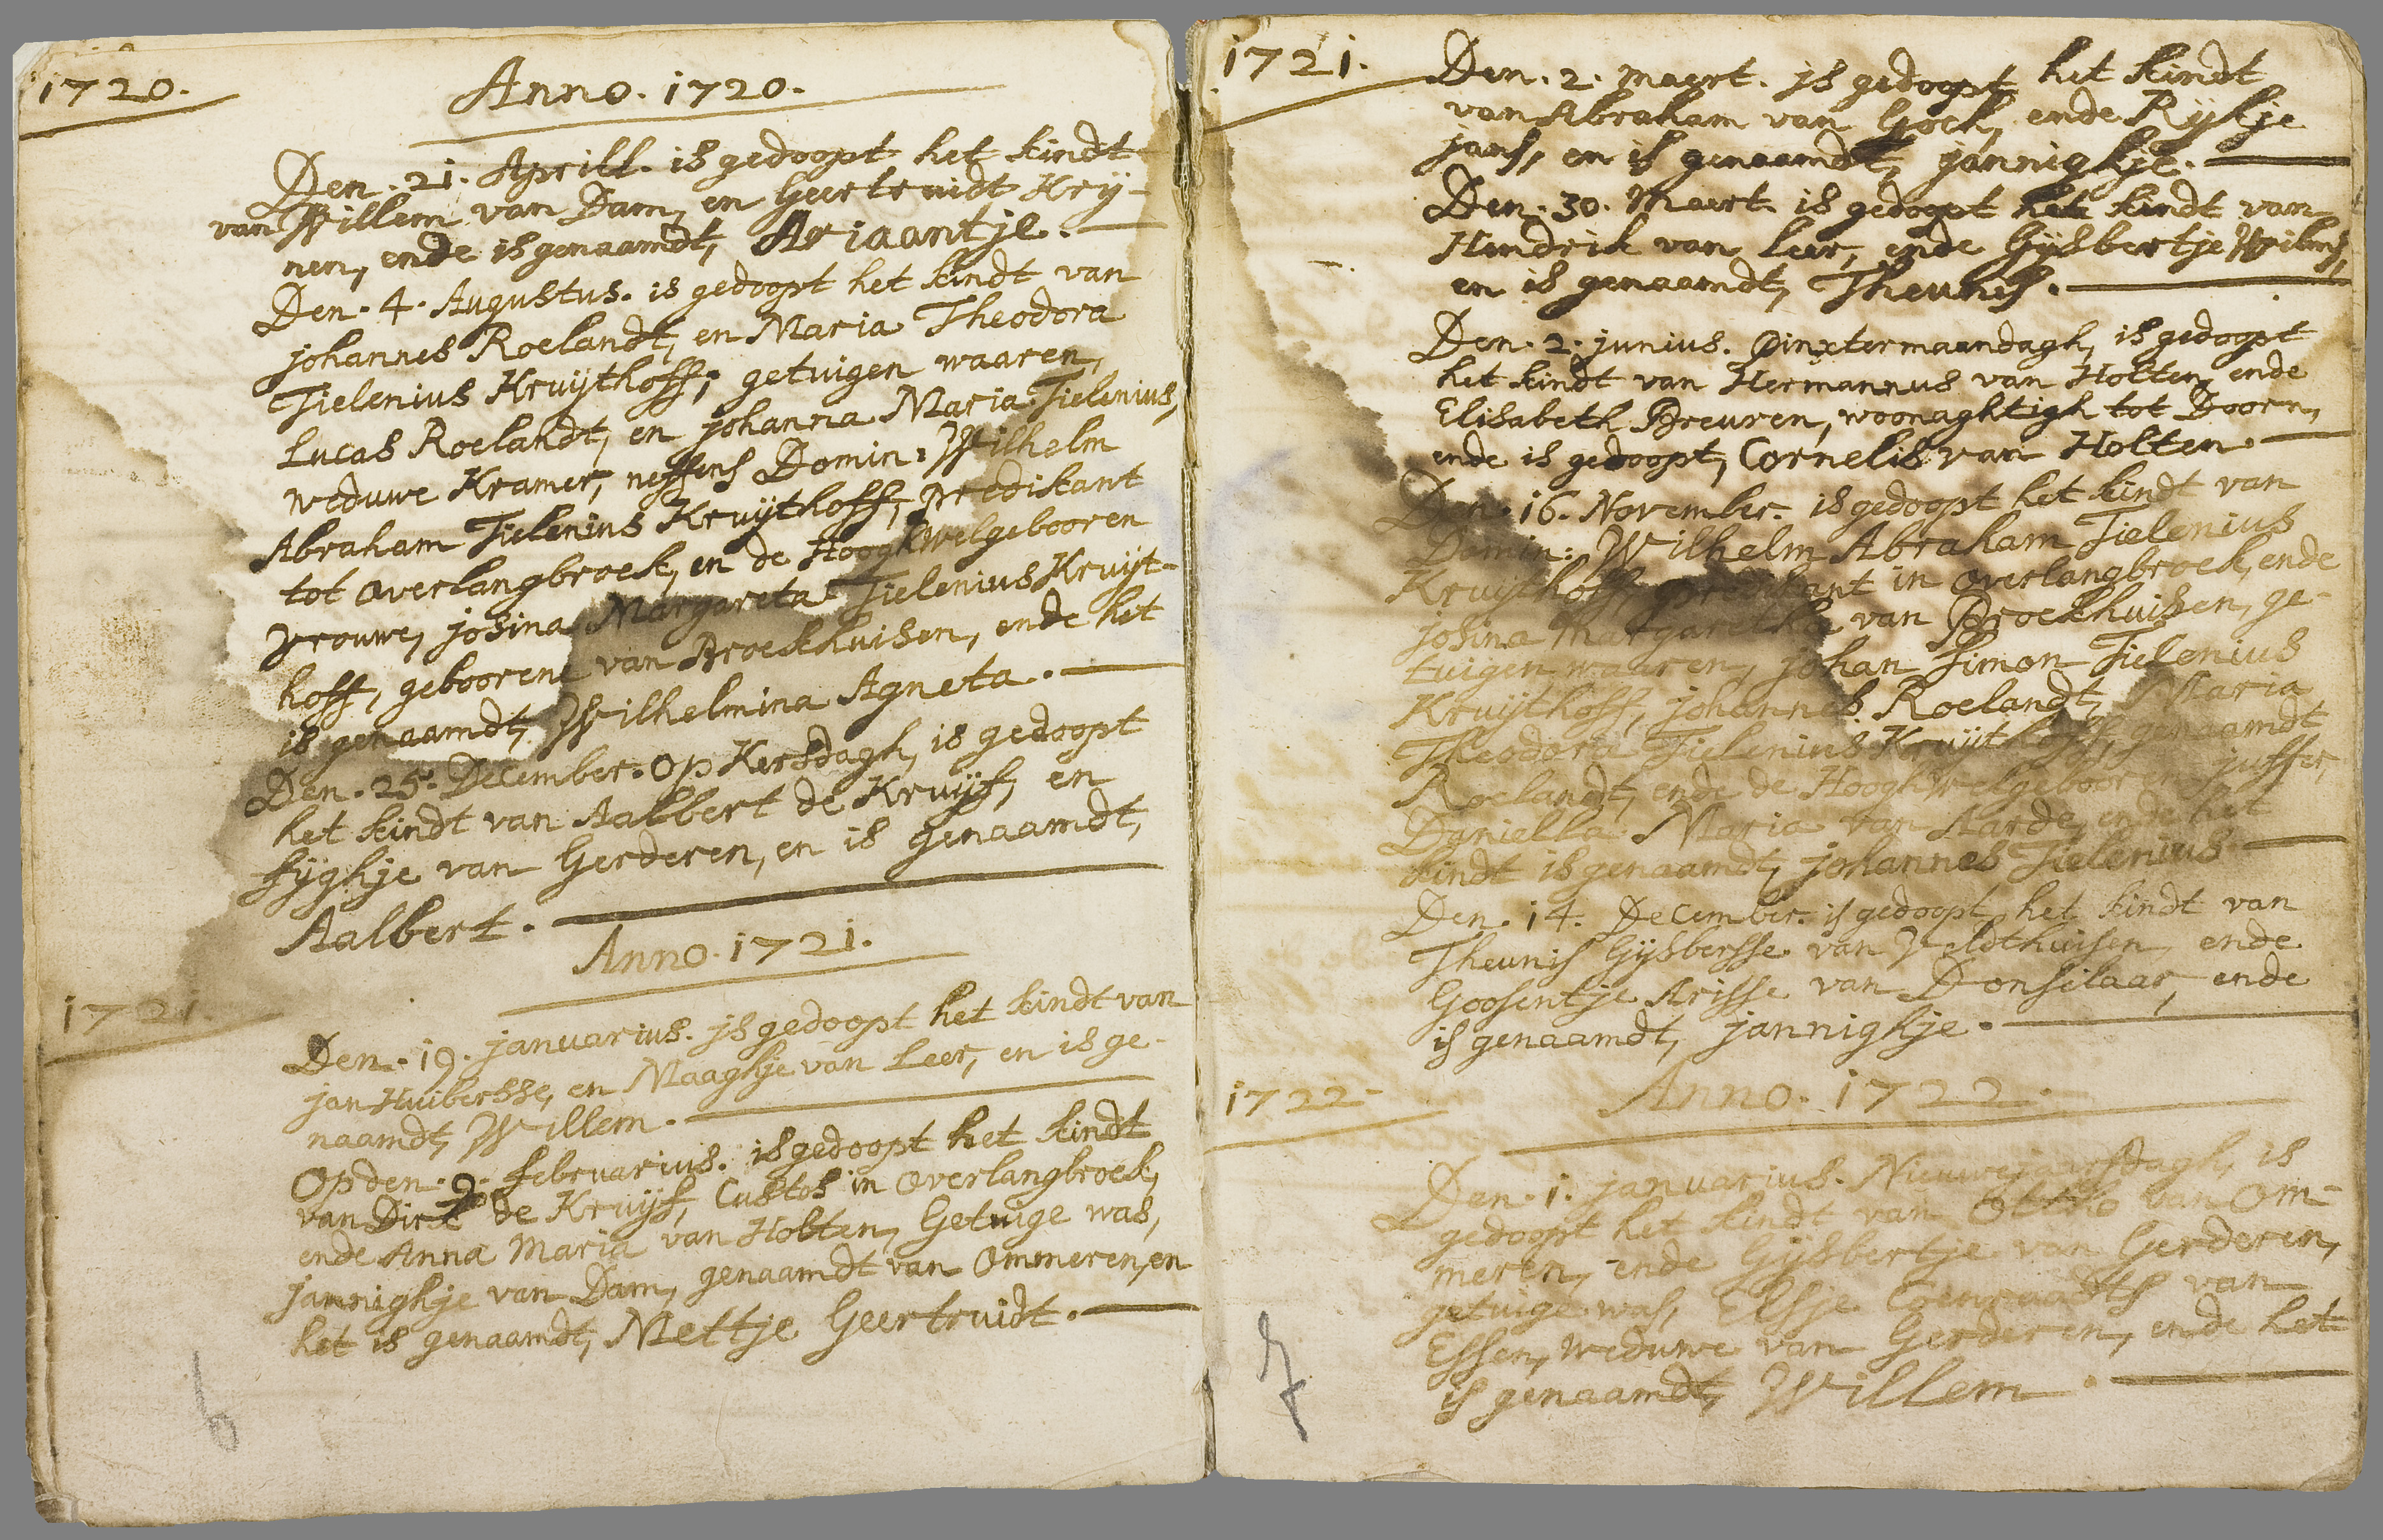 1720.
Anno. 1720.
Den. 21. Aprill. is gedoopt het kindt
van Willem van Dam, en Geertruidt Krÿ-
nen, ende is genaamdt, Ariaantje.
Den. 4. Augustus. is gedoopt het kindt van
johannes Roelandt, en Maria Theodora
Tielenius Kruÿthoff; getuigen waaren,
Lucas Roelandt, en johanna Maria Tielenius,
weduwe Kramer, neffens Domin: Wilhelm
Abraham Tielenius Kruÿthoff, predikant
tot Overlangbroek, en de Hoogh welgebooren
vrouwe, josina Margareta Tielenius Kruÿt-
hoff, geboorene van Broeckhuisen, ende het
is genaamdt, Wilhelmina Agneta.
Den. 25. December. op Kersdagh, is gedoopt
het kindt van Aalbert de Kruÿf, en
fÿghje van Gerderen, en is genaamdt,
Aalbert.
Anno. 1721.
1721.
Den. 19. januarius. js gedoopt het kindt van
jan Huibersse, en Maaghje van Leer, en is ge-
naamdt, Willem.
Op den. 9. februarius. is gedoopt het kindt
van Dirk de Kruÿf, Custos in Overlangbroek,
ende Anna Maria van Holten, Getuige was,
jannighje van Dam, genaamdt van Ommeren, en
het is genaamdt, Mettje Geertruidt.
6
1721.
Den. 2. maert. js gedoopt het kindt
van Abraham van Goch, ende Rÿkje
jans, en is genaamdt, jannighje.
Den. 30. Maert. is gedoopt het kindt van
Hendrik van Leer, ende Gÿsbertje Wilms,
en is genaamdt, Theunis.
Den. 2. junius. Pinxtermaandagh, is gedoopt
het kindt van Hermannus van Holten, ende
Elisabeth Breuren, woonaghtigh tot Doorn,
ende is gedoopt, Cornelis van Holten.
Den. 16. November. is gedoopt het kindt van
Domin: Wilhelm Abraham Tielenius
Kruÿthoff, predikant in Overlangbroek, ende
josina Margaretha van Broekhuisen, ge-
tuigen waaren, johan Simon Tielenius
Kruÿthoff, johannes Roelandt, Maria
Theodora Tielenius Kruÿthoff, genaamdt
Roelandt, ende de Hoogh welgebooren juffer,
Daniella Maria van Aarde, ende het
kindt is genaamdt, johannes Tielenius
Den. 14. December. is gedoopt het kindt van
Theunis Gÿsbersse van Veldthuisen, ende
Goosentje Arisse van Donselaar, ende
is genaamdt, jannighje.
1722
Anno. 1722.
Den. 1. januarius. Nieuwejaarsdagh, is
gedoopt het kindt van Ottho van Om-
meren, ende Gÿsbertje van Gerderen,
getuige was, Elsje Coenraadts van
Essen, weduwe van Gerderen, ende het
is genaamdt, Willem
7